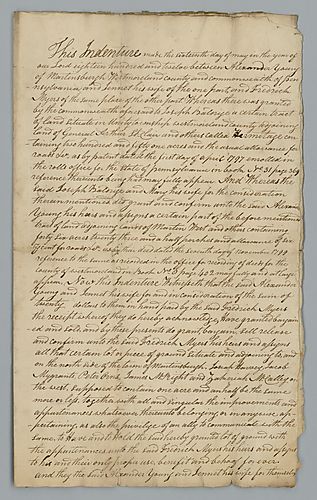 This Indenture made the sixteenth day of may in the year of
our Lord eighteen hundred and twelve between Alexander Young
of Martinsburgh Westmoreland county and commonwealth of pen
nsylvania and Jennet his wife of the one part and Fredrick
Myers of the same place of the other part Whereas there was granted
by the commonwealth aforesaid to Joseph a certain tract
of land situate in township westmoreland county adjoining
lands of General Arthur St. Clair and others called con
taining two hundred and fifty one acres and the usual allowance for
roads &c. as by patent dated the first day of april 1797 enrolled in
the rolls office for the State of pennsylvania in book No. 31 page 369
reference thereunto being had may fully appear And Whereas the
said Joseph and Mary his wife for the consideration
therein mentioned did grant and confirm unto the said Alexan
Young his heirs and assigns a certain part of the before mentioned
tract of land adjoining lands of and others containing
acres twenty three and a half perches and allowance of six
per cent for roads &c. by their deed dated the seventh day of November 1799
reference to the same as recorded in the office for recording of deeds for the
County of westmoreland in Book No. page 402 may fully and at large
appear Now this Indenture Witnesseth that the said Alexander
Young and Jennet his wife for and in consideration of the sum of
twenty dollars to them in hand paid by the said Fredrick Myers
the receipt whereof they do hereby acknowledge, have granted bargain
ed and sold, and by these presents do grant, bargain, sell release
and confirm unto the said Fredrick Myers his heirs and assigns
all that certain lot or piece of ground situate and adjoining to, and
on the north side of the town of Martinsburgh, Jacob
Peter James McBright and Zacheriah McCalley on
the west, supposed to contain one acre and an half be the same
more or less. Together with all and singular the improvements and
appurtenances whatsoever thereunto belonging or in anywise ap
pertaining, as also the privilege of an alley to communicate with the
same. To have and to hold the hereby granted lot of ground with
the appurtenances unto the said Fredrick Myers his heirs and assigns
to his and their only proper use, benefit and behoof for ever
and they the said Alexander Young and Jennet his wife for themselv